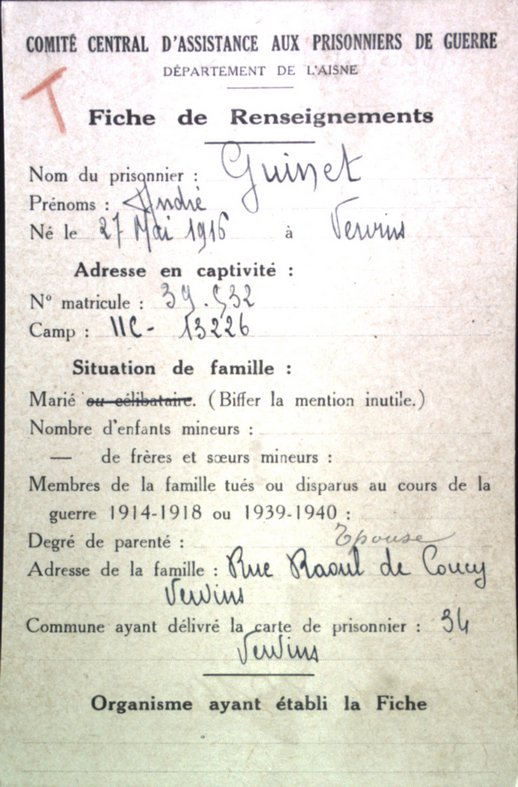 COMITÉ CENTRAL D'ASSISTANCE AUX PRISONNIERS DE GUERRE
DÉPARTEMENT DE L'AISNE
T
Fiche de Renseignements
Nom du prisonnier : Guinet
Prénoms : André
Né le 27 Mai 1916 à Vervins
Adresse en captivité :
N° matricule : 39.532
Camp : IIC - 13226
Situation de famille :
Marié ou célibataire. (Biffer la mention inutile.)
Nombre d'enfants mineurs :
— de frères et sœurs mineurs :
Membres de la famille tués ou disparus au cours de la
guerre 1914-1918 ou 1939-1940 :
Degré de parenté : Epouse
Adresse de la famille : Rue Raoul de Coucy
Vervins
Commune ayant délivré la carte de prisonnier : 34
Vervins
Organisme ayant établi la Fiche